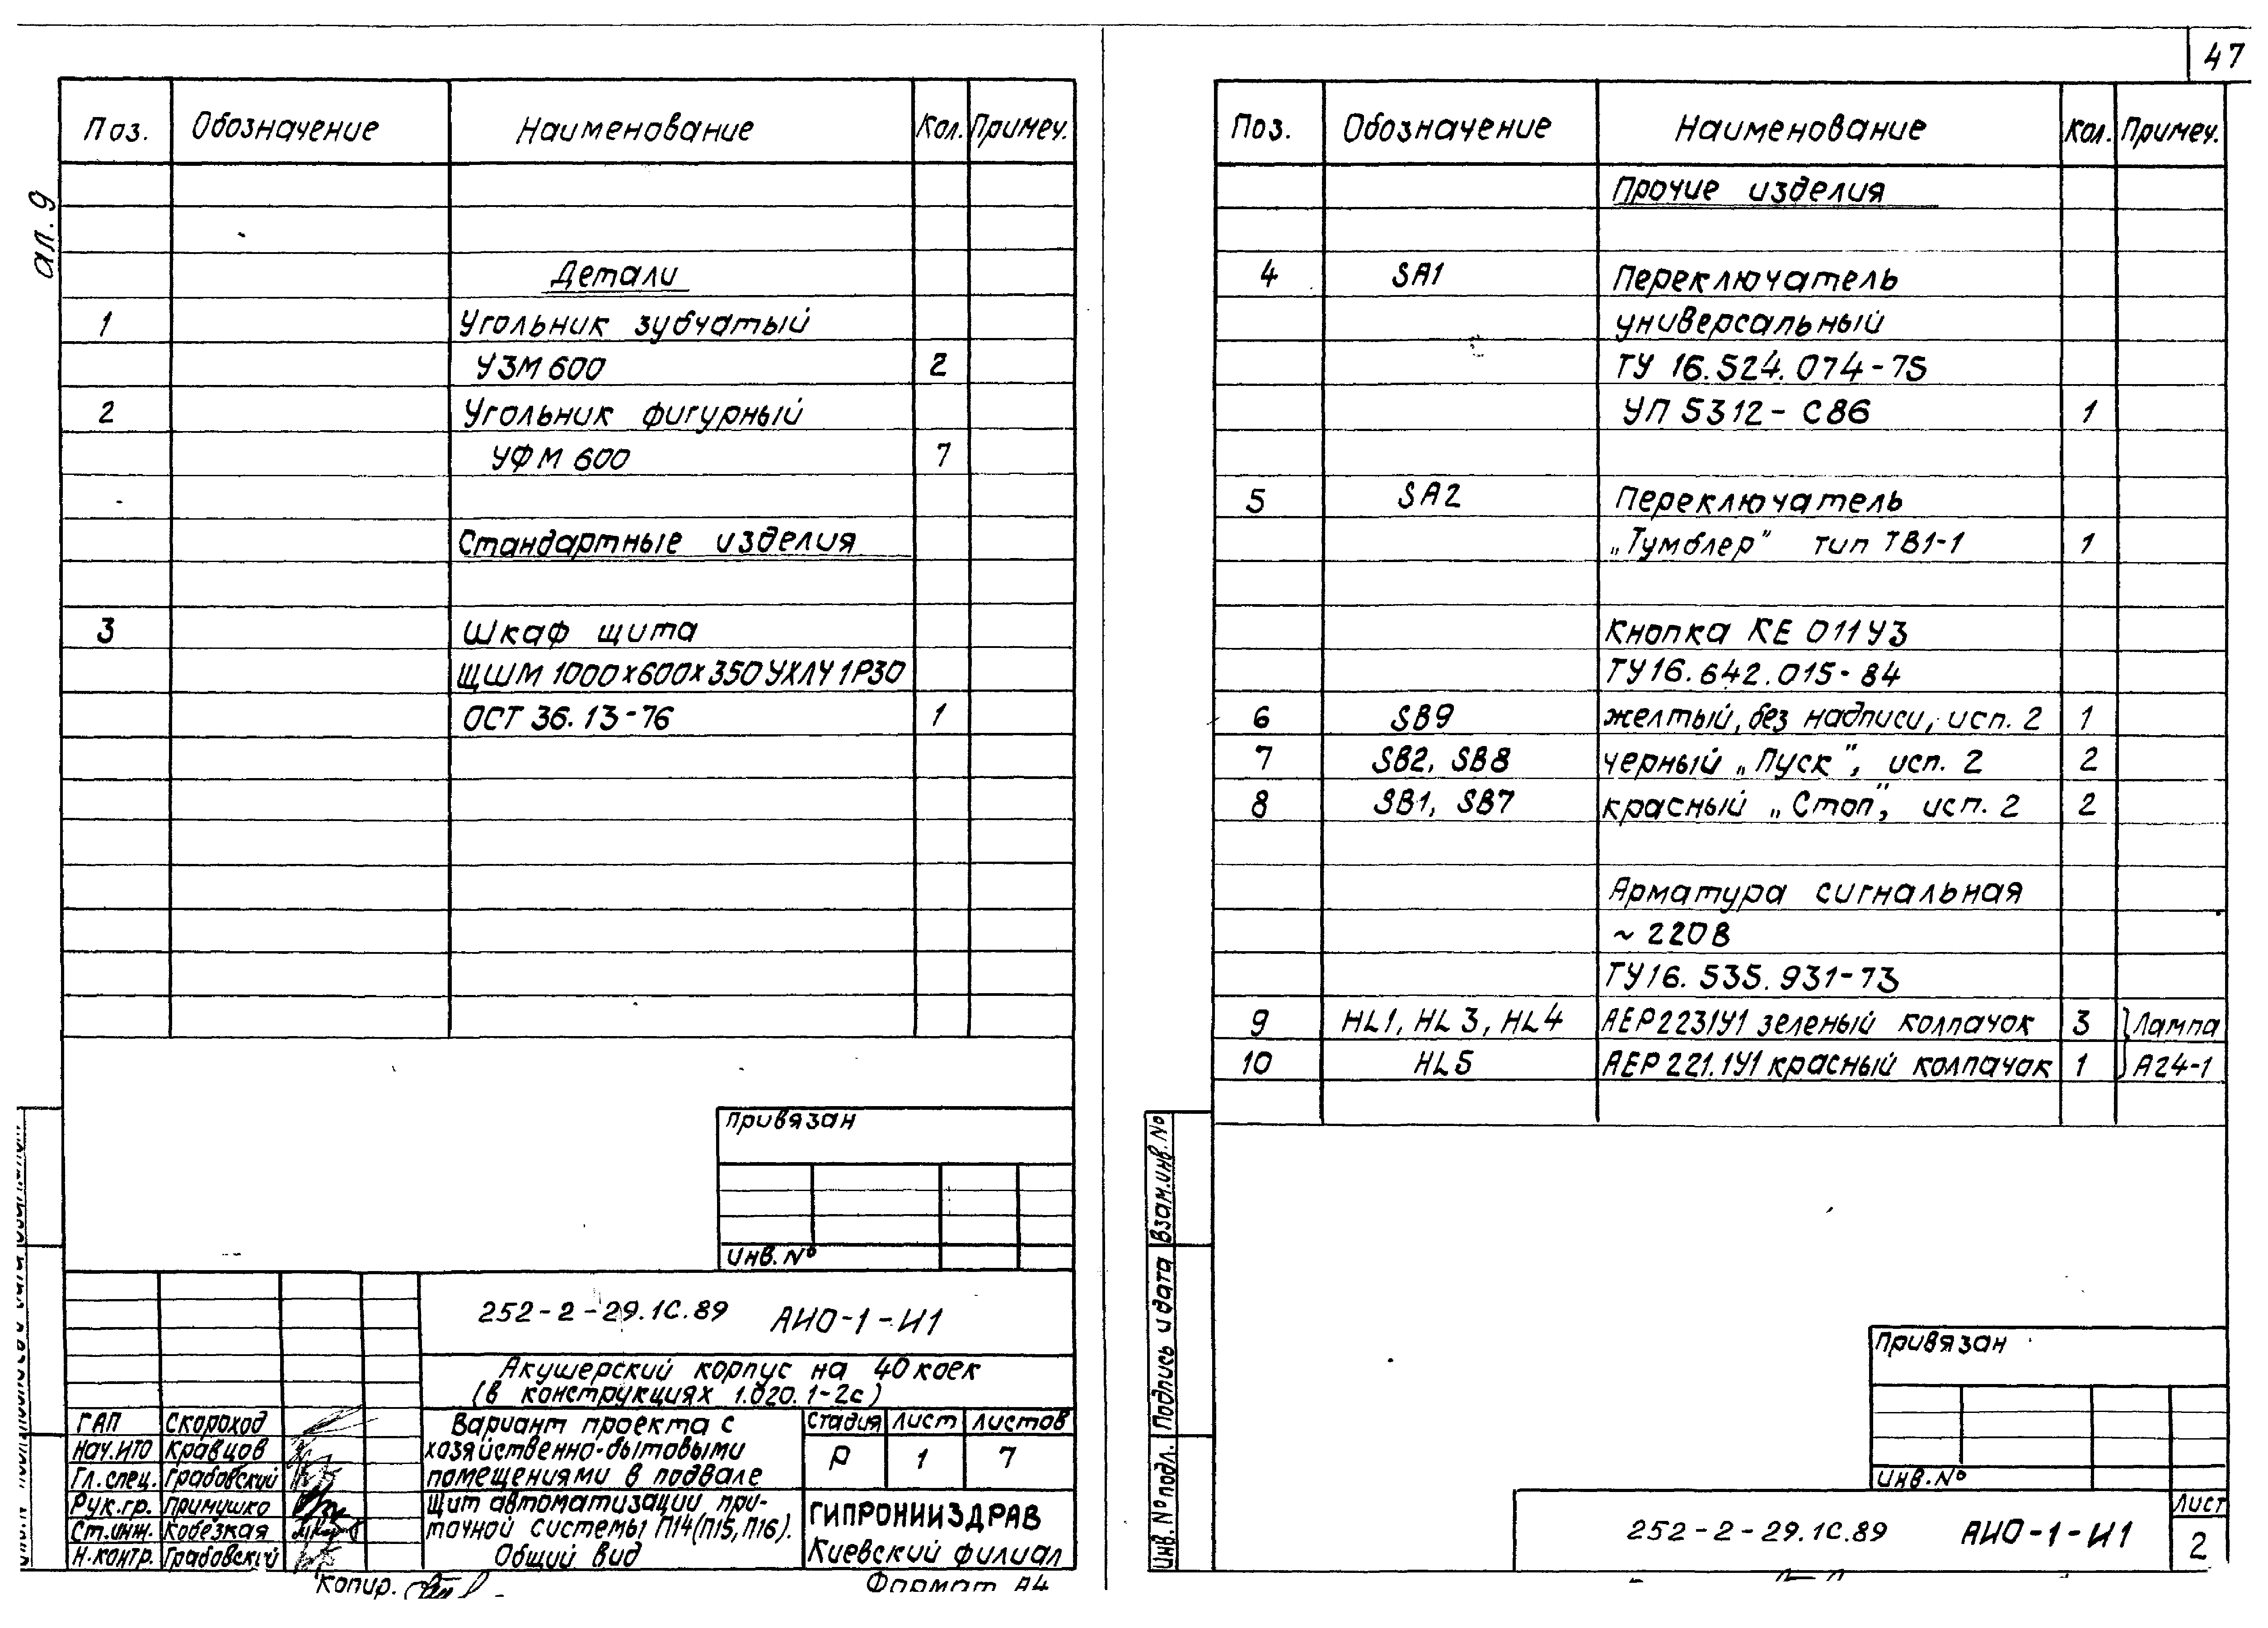 47
ал. 9
Поз. Обозначение Наименование Кол. Примеч.
Детали
1 Угольник зубчатый
УЗМ 600 2
2 Угольник фигурный
УФМ 600 7
Стандартные изделия
3 Шкаф щита
ЩШМ 1000х600х350УХЛ4 1Р30
ОСТ 36.13-76 1
Привязан
Инв. №
252-2-29.1С.89 АИО-1-И1
Акушерский корпус на 40 коек
(в конструкциях 1.020.1-2с)
Вариант проекта с
хозяйственно-бытовыми
помещениями в подвале
Стадия Лист Листов
Р 1 7
Щит автоматизации при-
точной системы П14(П15, П16).
Общий вид
ГИПРОНИИЗДРАВ
Киевский филиал
ГАП Скороход
Нач. ИТО Кравцов
Гл. спец. Грабовский
Рук. гр. Примушко
Ст. инж. Кобезкая
Н. контр. Грабовский
Копир.
Формат А4
Поз. Обозначение Наименование Кол. Примеч.
Прочие изделия
4 SA1 Переключатель
универсальный
ТУ 16.524.074-75
УП 5312-С86 1
5 SA2 Переключатель
„Тумблер" тип ТВ1-1 1
Кнопка КЕ 011У3
ТУ16.642.015-84
6 SB9 желтый, без надписи, исп. 2 1
7 SB2, SB8 черный „Пуск", исп. 2 2
8 SB1, SB7 красный „Стоп", исп. 2 2
Арматура сигнальная
~ 220В
ТУ16.535.931-73
9 HL1, HL3, HL4 АЕР2231У1 зеленый колпачок 3 Лампа
10 HL5 АЕР221.1У1 красный колпачок 1 А24-1
Взам. инв. №
Подпись и дата
Инв. № подл.
Привязан
Инв. №
252-2-29.1С.89 АИО-1-И1
Лист
2